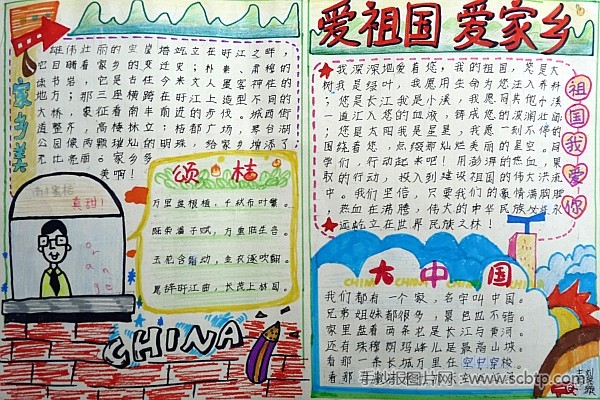 家乡美
雄伟壮丽的宝岩塔屹立在盱江之畔，
它目睹着家乡的变迁史；朴素、肃穆的
读书岩，它是古往今来文人墨客神往的
地方；那三座横跨在盱江上造型不同的
大桥，象征着南丰前进的步伐。城西街
道整齐，高楼林立；桔都广场、
公园像两颗璀灿的明珠，给家乡增添了
无比亮丽。家乡多
美啊！
颂桔
万里盘根植，千秋布叶繁。
既荣潘子赋，方重陆生言。
玉花含霜动，金衣逐吹翻。
愿辞盱江曲，长茂上林园。
南丰蜜桔
真甜！
orange
CHINA
爱祖国 爱家乡
我深深地爱着您，我的祖国，您是大
树我是绿叶，我愿用生命为您注入养料
；您是长江我是小溪，我愿同其他小溪
一道汇入您的血液，铸成您的波澜壮阔
；您是太阳我是星星，我愿一刻不停的
围绕着您，点缀那灿烂美丽的星空。同
学们，行动起来吧！用澎湃的热血，果
敢的行动，投入到建设祖国的伟大洪流
中。我们坚信，只要我们的豪情满胸膛
，热血在沸腾，伟大的中华民族必将永
远屹立在世界民族之林！
祖国我爱你
CHINA CHINA CHINA CHINA
大中国
我们都有一个家，名字叫中国。
兄弟姐妹都很多，景色也不错。
家里盘着两条龙是长江与黄河。
还有珠穆朗玛峰儿是最高山坡。
看那一条长城万里在空中穿梭
看那
手抄报图片网 www.scbtp.com